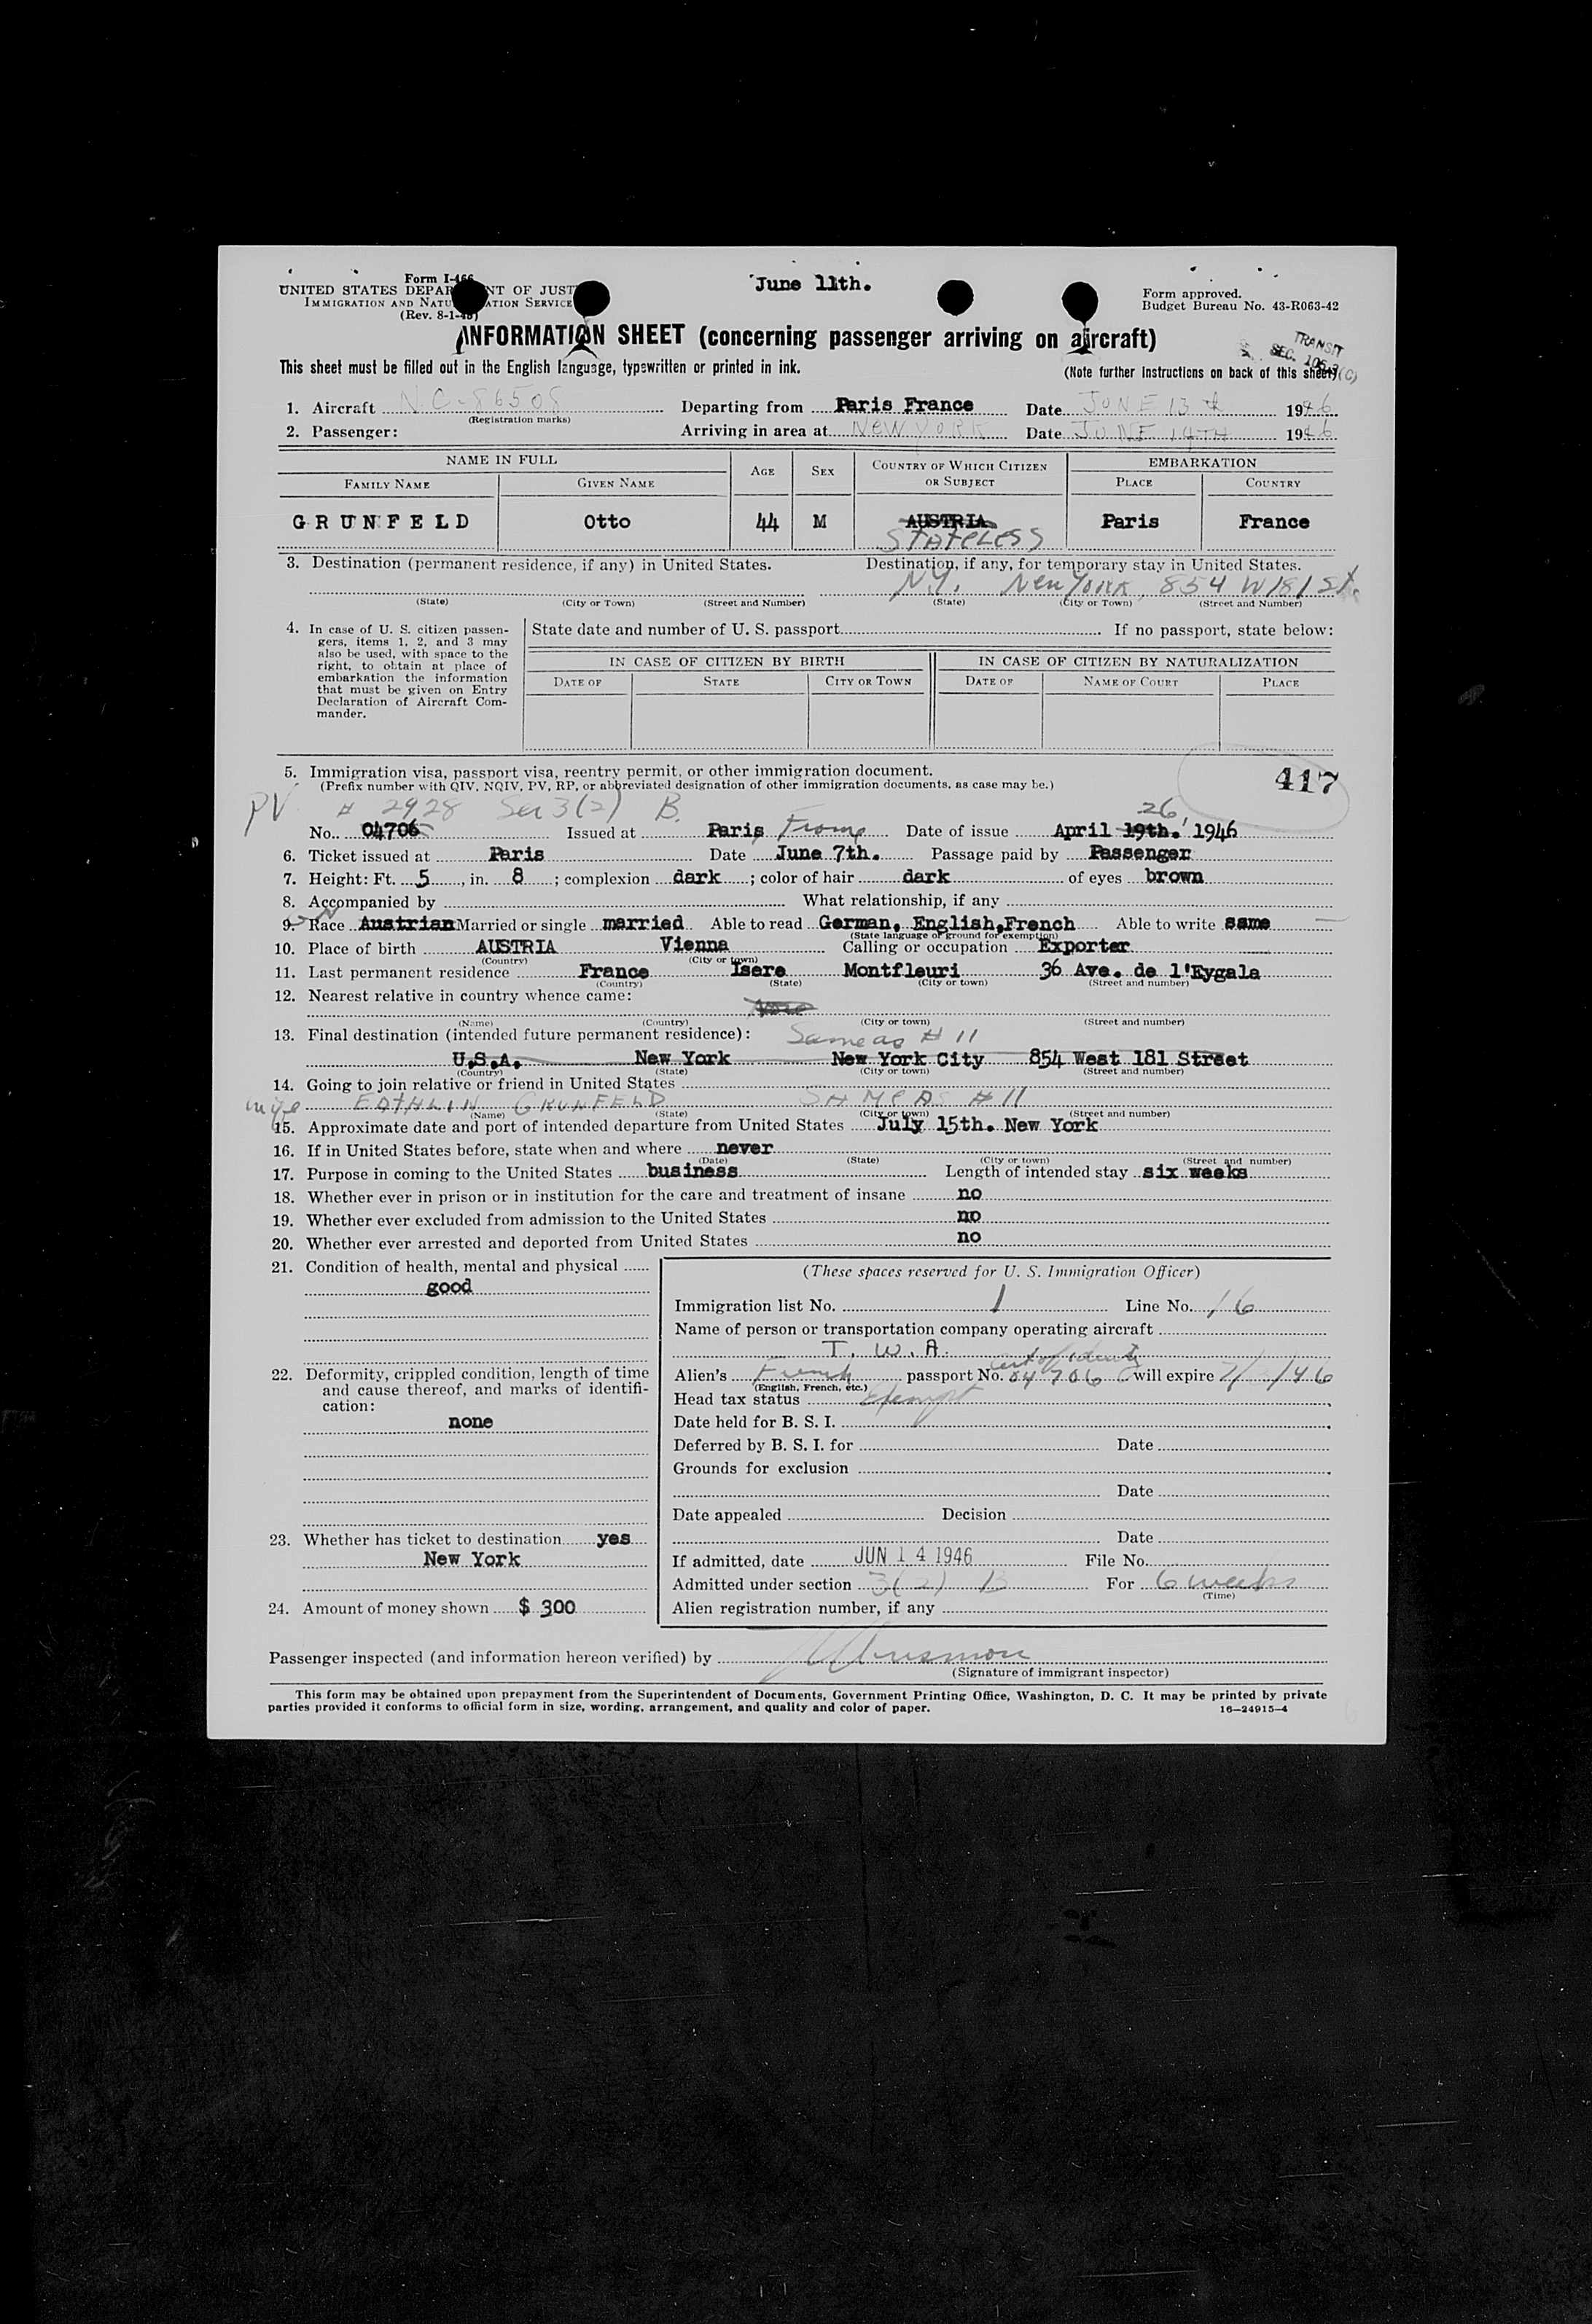 Form I-466
UNITED STATES DEPARTMENT OF JUSTICE
IMMIGRATION AND NATURALIZATION SERVICE
(Rev. 8-1-45)
June 11th.
Form approved.
Budget Bureau No. 43-R063-42
INFORMATION SHEET (concerning passenger arriving on aircraft)
TRANSIT
SEC. 105.3(C)
This sheet must be filled out in the English language, typewritten or printed in ink. (Note further instructions on back of this sheet)
1. Aircraft N.C-86505 Departing from Paris France Date JUNE 13th 1946
(Registration marks)
2. Passenger: Arriving in area at NEW YORK Date JUNE 14TH 1946
NAME IN FULL AGE SEX COUNTRY OF WHICH CITIZEN OR SUBJECT EMBARKATION
FAMILY NAME GIVEN NAME PLACE COUNTRY
GRUNFELD Otto 44 M AUSTRIA Paris France
STATELESS
3. Destination (permanent residence, if any) in United States. Destination, if any, for temporary stay in United States.
N.Y. New York, 854 W 181 St.
(State) (City or Town) (Street and Number) (State) (City or Town) (Street and Number)
4. In case of U. S. citizen passengers, items 1, 2, and 3 may also be used, with space to the right, to obtain at place of embarkation the information that must be given on Entry Declaration of Aircraft Commander.
State date and number of U. S. passport If no passport, state below:
IN CASE OF CITIZEN BY BIRTH IN CASE OF CITIZEN BY NATURALIZATION
DATE OF STATE CITY OR TOWN DATE OF NAME OF COURT PLACE
5. Immigration visa, passport visa, reentry permit, or other immigration document.
417
(Prefix number with QIV, NQIV, PV, RP, or abbreviated designation of other immigration documents, as case may be.)
PV # 2928 Sec 3(2) B. 26,
No. 04706 Issued at Paris, France Date of issue April 19th. 1946
6. Ticket issued at Paris Date June 7th. Passage paid by Passenger
7. Height: Ft. 5, in. 8; complexion dark; color of hair dark of eyes brown
8. Accompanied by What relationship, if any
9. Race Austrian Married or single married Able to read German, English,French Able to write same
(State language or ground for exemption)
10. Place of birth AUSTRIA Vienna Calling or occupation Exporter
(Country) (City or town)
11. Last permanent residence France Isere Montfleuri 36 Ave. de l'Eygala
(Country) (State) (City or town) (Street and number)
12. Nearest relative in country whence came:
(Name) (Country) (City or town) (Street and number)
13. Final destination (intended future permanent residence): Same as # 11
U.S.A. New York New York City 854 West 181 Street
(Country) (State) (City or town) (Street and number)
14. Going to join relative or friend in United States
wife EATHLIN GRUNFELD SAME AS # 11
(Name) (State) (City or town) (Street and number)
15. Approximate date and port of intended departure from United States July 15th. New York
16. If in United States before, state when and where never
(Date) (State) (City or town) (Street and number)
17. Purpose in coming to the United States business Length of intended stay six weeks
18. Whether ever in prison or in institution for the care and treatment of insane no
19. Whether ever excluded from admission to the United States no
20. Whether ever arrested and deported from United States no
21. Condition of health, mental and physical
good
22. Deformity, crippled condition, length of time and cause thereof, and marks of identification:
none
23. Whether has ticket to destination yes
New York
24. Amount of money shown $ 300
(These spaces reserved for U. S. Immigration Officer)
Immigration list No. 1 Line No. 16
Name of person or transportation company operating aircraft
T. W. A.
cert of identity
Alien's French passport No. 04706 will expire
(English, French, etc.)
Head tax status Exempt
Date held for B. S. I.
Deferred by B. S. I. for Date
Grounds for exclusion
Date
Date appealed Decision
Date
If admitted, date JUN 14 1946 File No.
Admitted under section 3(2) B For 6 weeks
(Time)
Alien registration number, if any
Passenger inspected (and information hereon verified) by
(Signature of immigrant inspector)
This form may be obtained upon prepayment from the Superintendent of Documents, Government Printing Office, Washington, D. C. It may be printed by private
parties provided it conforms to official form in size, wording, arrangement, and quality and color of paper. 16—24915-4